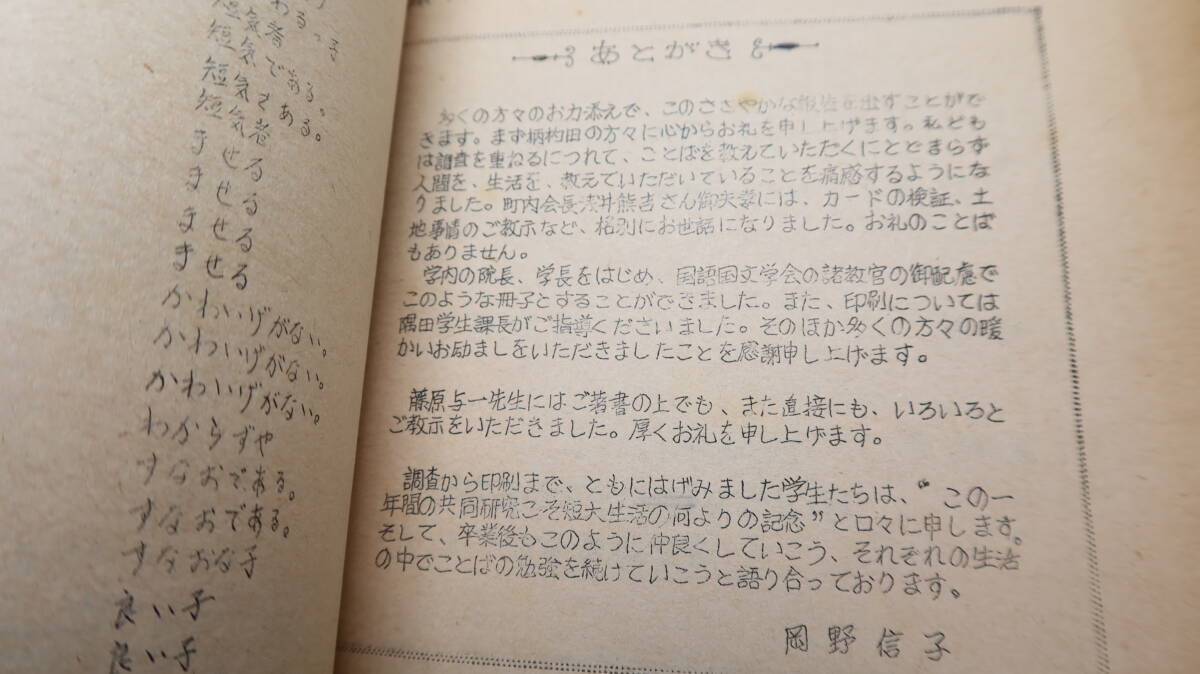 短気者
短気である。
短気である。
短気者
ませせる
ませせる
ませせる
ませせる
かわいげがない。
かわいげがない。
かわいげがない。
わからずや
すなおである。
すなおである。
すなおな子
良い子
良い子
あとがき
多くの方々のお力添えで、このささやかな報告を出すことがで
きます。まず柄杓田の方々に心からお礼を申し上げます。私ども
は調査を重ねるにつれて、ことばを教えていただくにとどまらず
人間を、生活を、教えていただいていることを痛感するようにな
りました。町内会長浅井熊吉さん御夫妻には、カードの検証、土
地事情のご教示など、格別にお世話になりました。お礼のことば
もありません。
学内の院長、学長をはじめ、国語国文学会の諸教官の御配慮で
このような冊子とすることができました。また、印刷については
隅田学生課長がご指導くださいました。そのほか多くの方々の暖
かいお励ましをいただきましたことを感謝申し上げます。
藤原与一先生にはご著書の上でも、また直接にも、いろいろと
ご教示をいただきました。厚くお礼を申し上げます。
調査から印刷まで、ともにはげみました学生たちは、“この一
年間の共同研究こそ短大生活の何よりの記念”と口々に申します。
そして、卒業後もこのように仲良くしていこう、それぞれの生活
の中でことばの勉強を続けていこうと語り合っております。
岡野信子